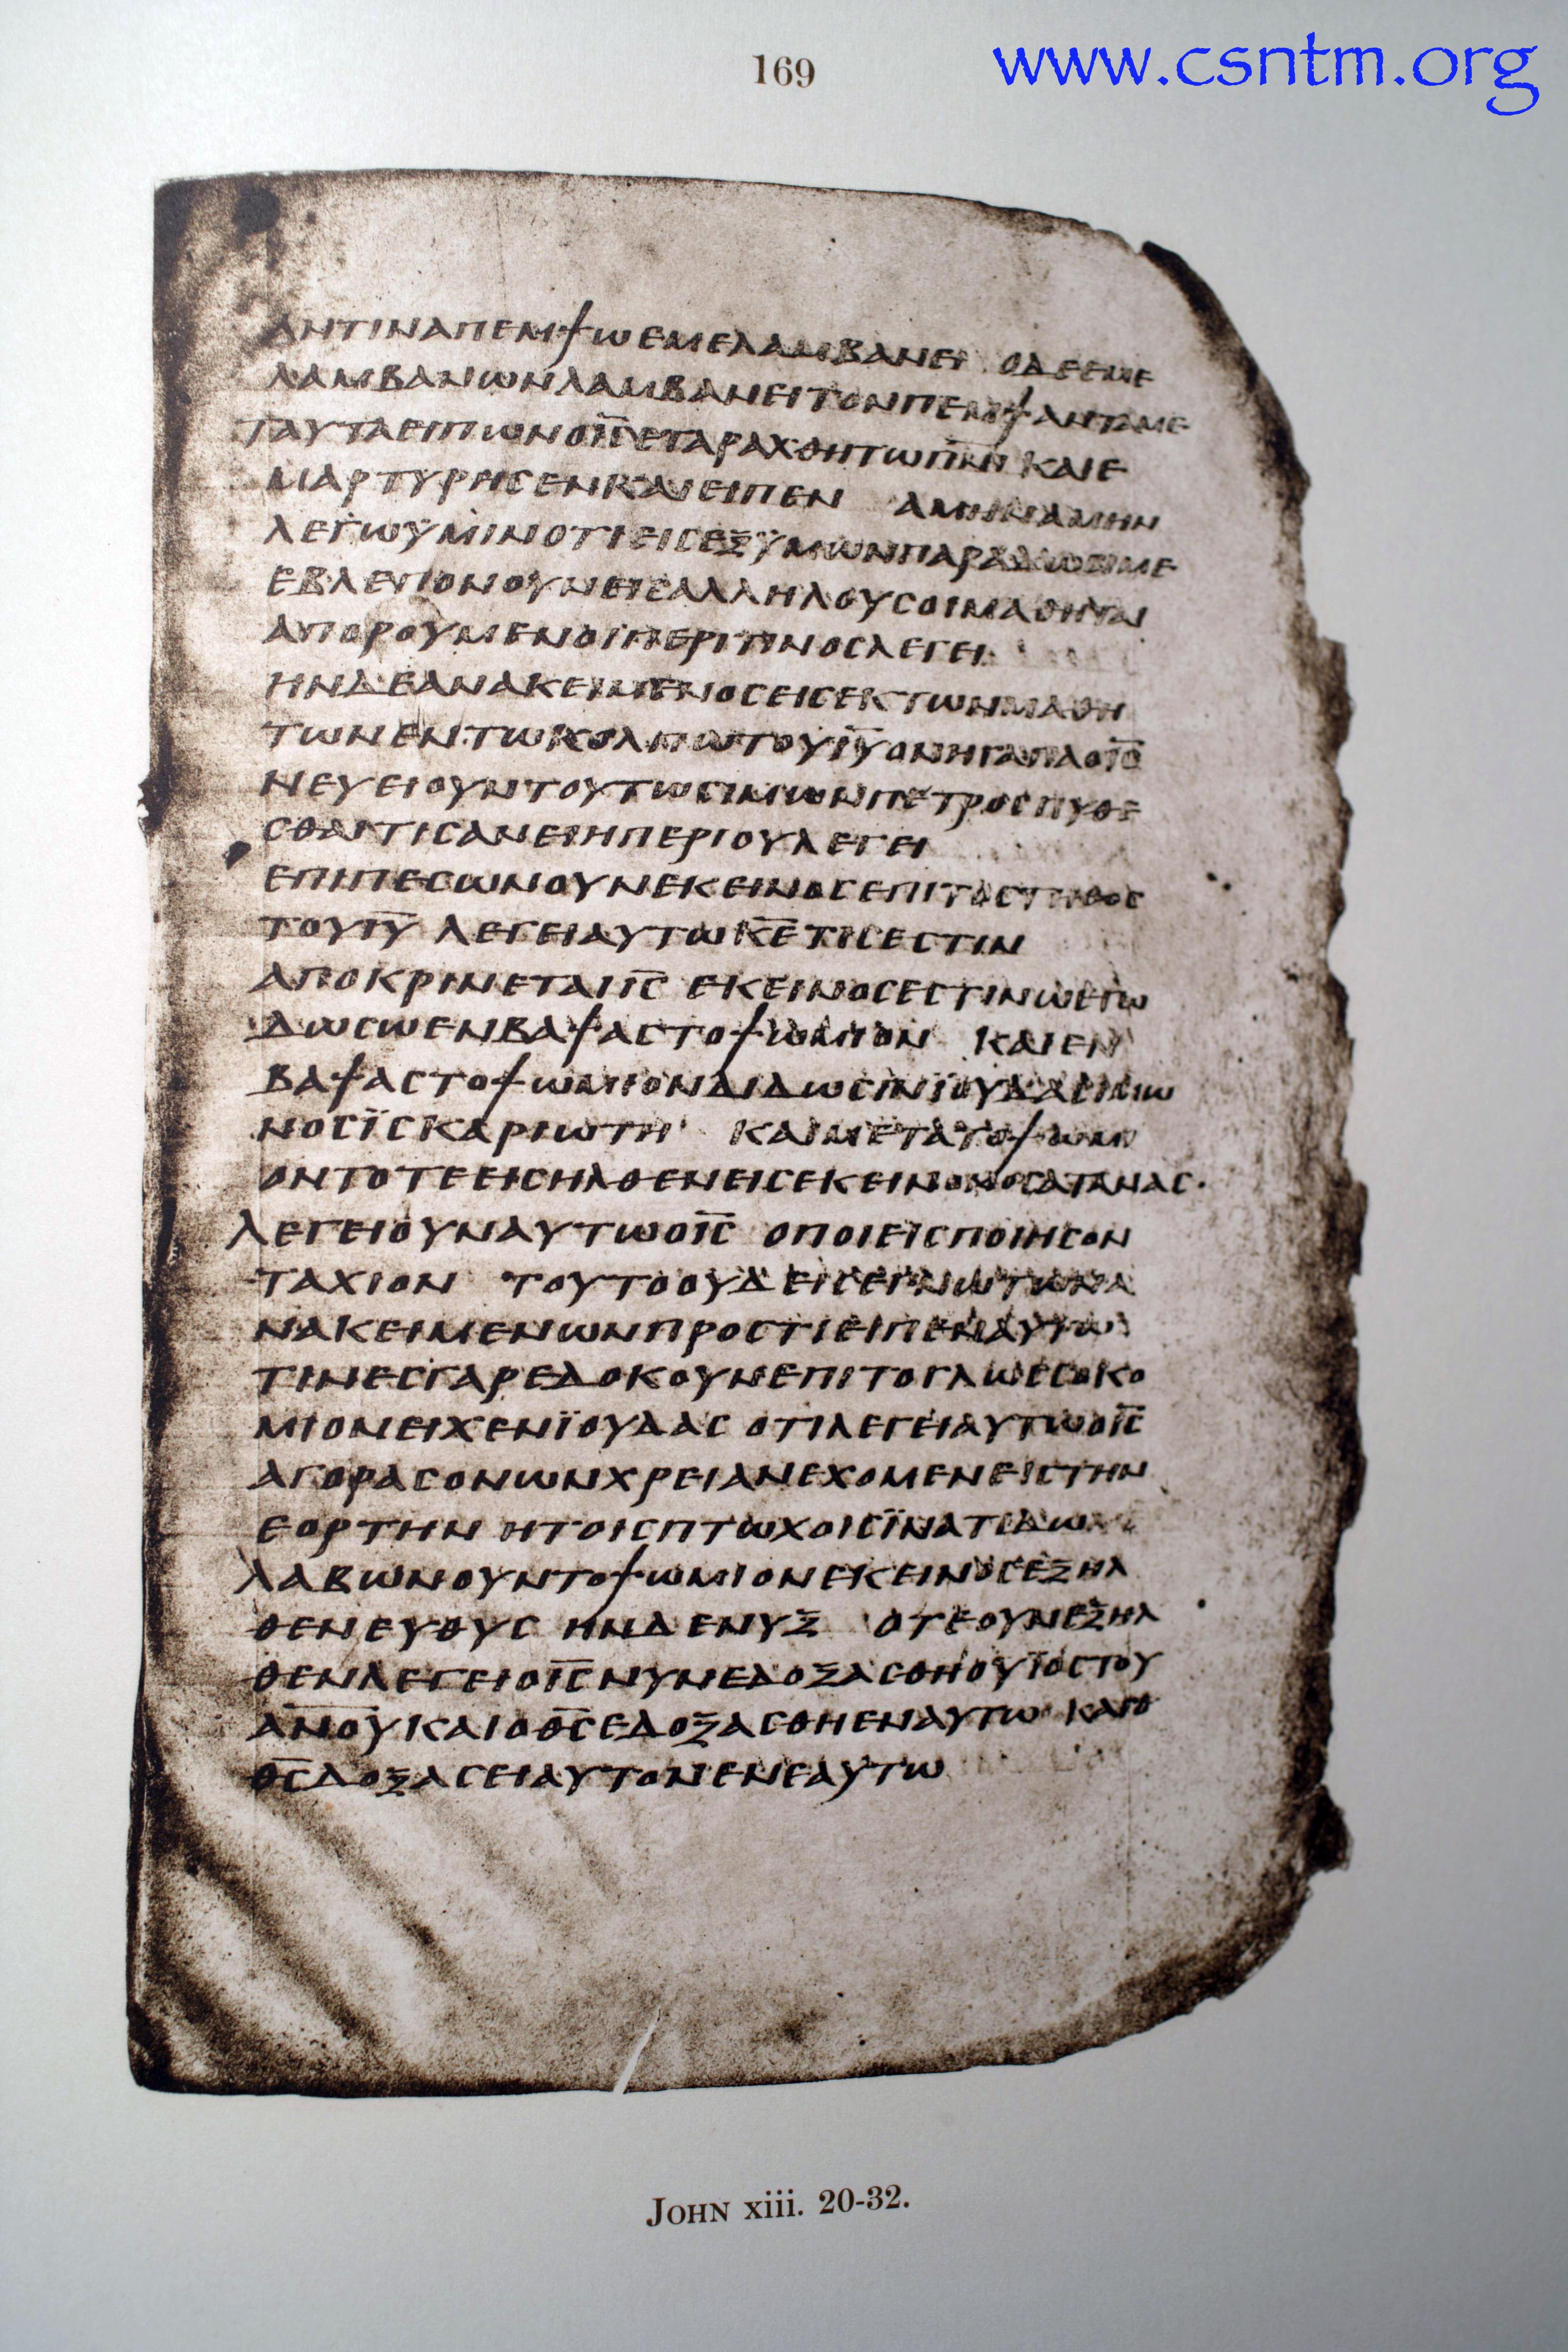 169
www.csntm.org
ΑΝΤΙΝΑΠΕΜΨΩΕΜΕΛΑΜΒΑΝΕΙ ΟΔΕΕΜΕ
ΛΑΜΒΑΝΩΝΛΑΜΒΑΝΕΙΤΟΝΠΕΜΨΑΝΤΑΜΕ
ΤΑΥΤΑΕΙΠΩΝΟΙ̅Σ̅ΕΤΑΡΑΧΘΗΤΩΠ̅Ν̅Ι̅ ΚΑΙΕ
ΜΑΡΤΥΡΗϹΕΝΚΑΙΕΙΠΕΝ ΑΜΗΝΑΜΗΝ
ΛΕΓΩΫΜΙΝΟΤΙΕΙϹΕΞΫΜΩΝΠΑΡΑΔΩϹΙΜΕ
ΕΒΛΕΠΟΝΟΥΝΕΙϹΑΛΛΗΛΟΥϹΟΙΜΑΘΗΤΑΙ
ΑΠΟΡΟΥΜΕΝΟΙΠΕΡΙΤΙΝΟϹΛΕΓΕΙ
ΗΝΔΕΑΝΑΚΕΙΜΕΝΟϹΕΙϹΕΚΤΩΝΜΑΘΗ
ΤΩΝΕΝΤΩΚΟΛΠΩΤΟΥΙ̅Υ̅ΟΝΗΓΑΠΑΟΙ̅Ϲ̅
ΝΕΥΕΙΟΥΝΤΟΥΤΩϹΙΜΩΝΠΕΤΡΟϹΠΥΘΕ
ϹΘΑΙΤΙϹΑΝΕΙΗΠΕΡΙΟΥΛΕΓΕΙ
ΕΠΙΠΕϹΩΝΟΥΝΕΚΕΙΝΟϹΕΠΙΤΟϹΤΗΘΟϹ
ΤΟΥΙ̅Υ̅ ΛΕΓΕΙΑΥΤΩΚ̅Ε̅ΤΙϹΕϹΤΙΝ
ΑΠΟΚΡΙΝΕΤΑΙΙ̅Ϲ̅ ΕΚΕΙΝΟϹΕϹΤΙΝΩΕΓΩ
ΔΩϹΩΕΝΒΑΨΑϹΤΟΨΩΜΙΟΝ ΚΑΙΕΝ
ΒΑΨΑϹΤΟΨΩΜΙΟΝΔΙΔΩϹΙΝΪΟΥΔΑϹΙΜΩ
ΝΟϹΪϹΚΑΡΙΩΤΗ ΚΑΙΜΕΤΑΤΟΨΩΜΙ
ΟΝΤΟΤΕΕΙϹΗΛΘΕΝΕΙϹΕΚΕΙΝΟΝΟϹΑΤΑΝΑϹ·
ΛΕΓΕΙΟΥΝΑΥΤΩΟΙ̅Ϲ̅ ΟΠΟΙΕΙϹΠΟΙΗϹΟΝ
ΤΑΧΙΟΝ ΤΟΥΤΟΟΥΔΕΙϹΕΓΝΩΤΩΝΑ
ΝΑΚΕΙΜΕΝΩΝΠΡΟϹΤΙΕΙΠΕΝΑΥΤΩ
ΤΙΝΕϹΓΑΡΕΔΟΚΟΥΝΕΠΙΤΟΓΛΩϹϹΟΚΟ
ΜΙΟΝΕΙΧΕΝΪΟΥΔΑϹ ΟΤΙΛΕΓΕΙΑΥΤΩΟΙ̅Ϲ̅
ΑΓΟΡΑϹΟΝΩΝΧΡΕΙΑΝΕΧΟΜΕΝΕΙϹΤΗΝ
ΕΟΡΤΗΝ ΗΤΟΙϹΠΤΩΧΟΙϹΪΝΑΤΙΔΩ
ΛΑΒΩΝΟΥΝΤΟΨΩΜΙΟΝΕΚΕΙΝΟϹΕΞΗΛ
ΘΕΝΕΥΘΥϹ ΗΝΔΕΝΥΞ ΟΤΕΟΥΝΕΞΗΛ
ΘΕΝΛΕΓΕΙΟΙ̅Ϲ̅ΝΥΝΕΔΟΞΑϹΘΗΟΥΪΟϹΤΟΥ
Α̅Ν̅Ο̅Υ̅ΚΑΙΟΘ̅Ϲ̅ΕΔΟΞΑϹΘΗΕΝΑΥΤΩ ΚΑΙΟ
Θ̅Ϲ̅ΔΟΞΑϹΕΙΑΥΤΟΝΕΝΕΑΥΤΩ
JOHN xiii. 20-32.